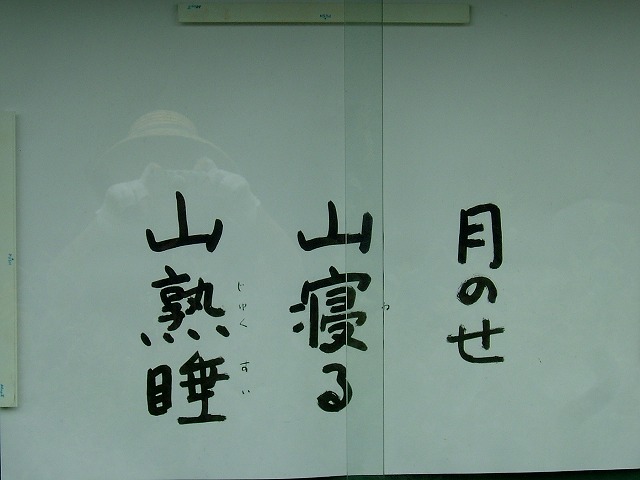 月のせ
山寝る
山熟睡
じゅく すい